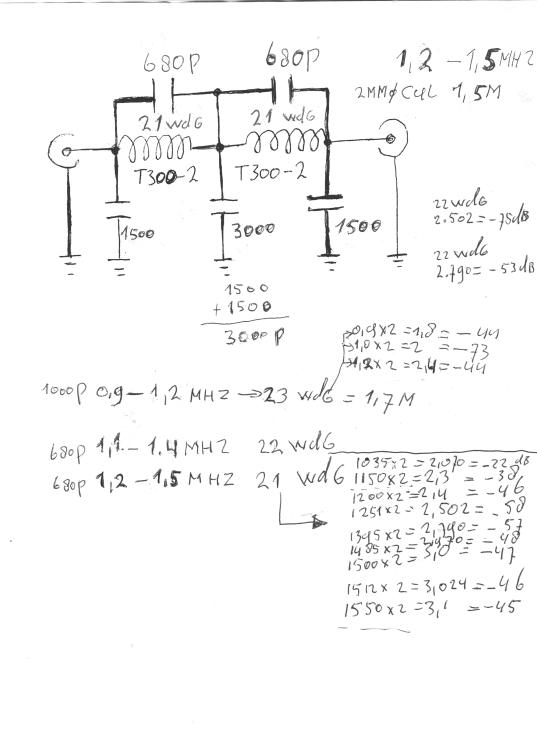 680P 680P 1,2 - 1,5 MHZ
2MMϕ CUL 1,5M
21 wdG 21 wdG
T300-2 T300-2
1500 3000 1500
22 wdG
2.502 = -75dB
22 wdG
2.790 = -53dB
1500
+ 1500
3000 P
0,9x2 = 1,8 = -44
1,0x2 = 2 = -73
1,2x2 = 2,4 = -44
1000P 0,9 - 1,2 MHZ → 23 wdG = 1,7 M
680p 1,1 - 1.4 MHZ 22 wdG
680p 1,2 - 1,5 MHZ 21 wdG
1035x2 = 2,070 = -22 dB
1150x2 = 2,3 = -38
1200x2 = 2,4 = -46
1251x2 = 2,502 = -58
1395x2 = 2,790 = -57
1485x2 = 2,970 = -48
1500x2 = 3,0 = -47
1512x2 = 3,024 = -46
1550x2 = 3,1 = -45